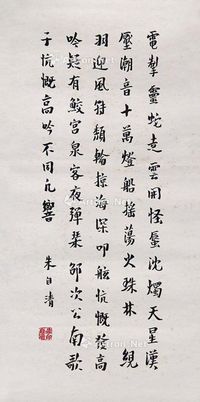 電掣靈蛇走雲開怪蜃沈燭天星漢
壓潮音十萬燈船搖蕩火珠林 綄
羽迎風弱頹輪掠海深叩舷慷慨發高
吟疑有鮫宮泉客夜彈琴 邵次公南歌
子慷慨高吟不同凡響
朱自清